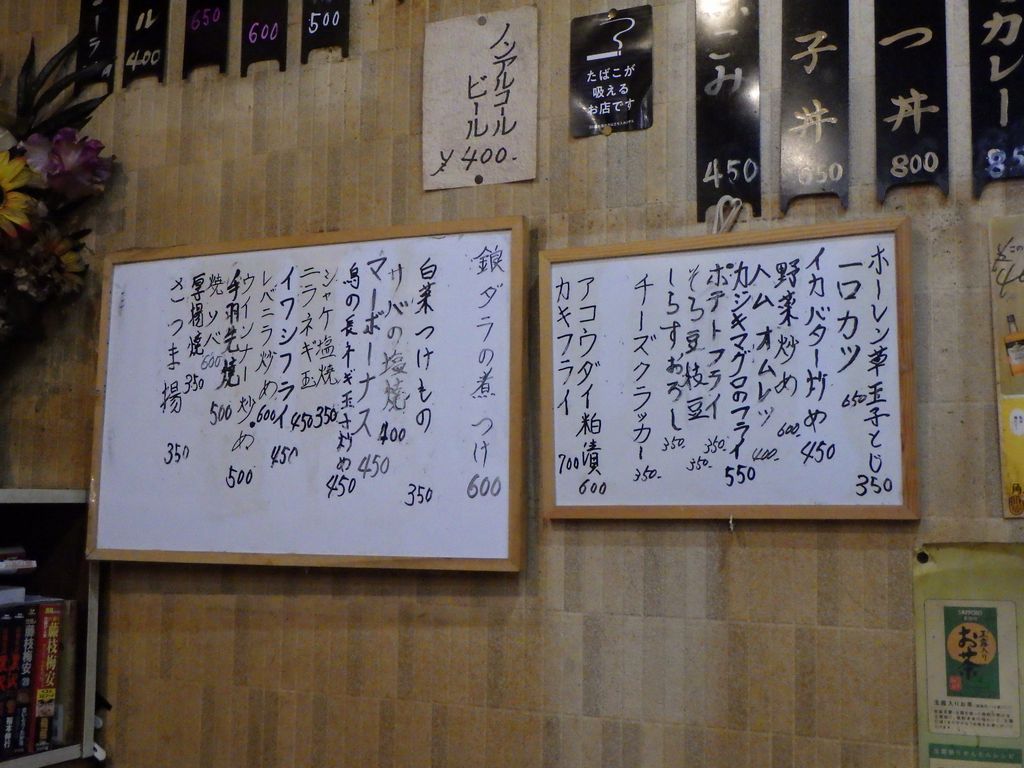 ル 400
650
600
500
ノンアルコール
ビール
¥400-
たばこが
吸える
お店です
こみ 450
子丼 650
つ丼 800
カレー 85
ホーレン草玉子とじ 350
一口カツ 650
イカバター炒め 450
野菜炒め 600
ハムオムレツ 400-
カジキマグロのフライ 550
ポテトフライ 350-
そら豆枝豆 350-
しらすおろし 350-
チーズクラッカー 350-
アコウダイ粕漬 600
カキフライ 700
銀ダラの煮つけ 600
白菜つけもの 350
サバの塩焼 400
マーボーナス 450
鳥の長ネギ玉子炒め 450
シャケ塩焼 350
ニラネギ玉 450
イワシフライ 450
レバニラ炒め 600
ウインナー炒め 500
手羽先焼 500
焼ソバ 600
厚揚焼 350
さつま揚 350
藤枝梅安
藤枝梅安
SAPPORO
玉露入り
お茶
玉露入りお茶